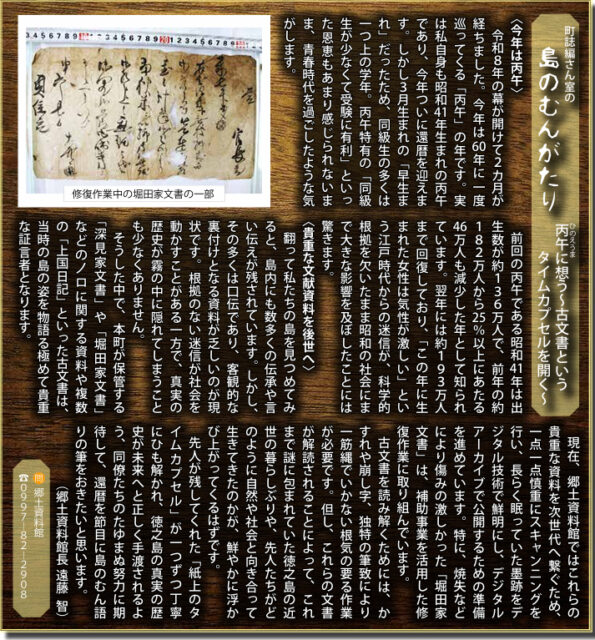 町誌編さん室の
島のむんがたり
丙午に想う〜古文書という
ひのえうま
タイムカプセルを開く〜
〈今年は丙午〉
令和8年の幕が開けて2カ月が
経ちました。今年は60年に一度
巡ってくる「丙午」の年です。実
は私自身も昭和41年生まれの丙午
であり、今年ついに還暦を迎えま
す。しかし3月生まれの「早生ま
れ」だったため、同級生の多くは
一つ上の学年。丙午特有の「同級
生が少なくて受験に有利」といっ
た恩恵もあまり感じられないま
ま、青春時代を過ごしたような気
がします。
修復作業中の堀田家文書の一部
前回の丙午である昭和41年は出
生数が約136万人で、前年の約
182万人から25%以上にあたる
46万人も減少した年として知られ
ています。翌年には約193万人
まで回復しており、「この年に生
まれた女性は気性が激しい」とい
う江戸時代からの迷信が、科学的
根拠を欠いたまま昭和の社会にま
で大きな影響を及ぼしたことには
驚きます。
〈貴重な文献資料を後世へ〉
翻って私たちの島を見つめてみ
ると、島内にも数多くの伝承や言
い伝えが残されています。しかし、
その多くは口伝であり、客観的な
裏付けとなる資料が乏しいのが現
状です。根拠のない迷信が社会を
動かすことがある一方で、真実の
歴史が霧の中に隠れてしまうこと
も少なくありません。
そうした中で、本町が保管する
「深見家文書」や「堀田家文書」
などのノロに関する資料や複数
の「上国日記」といった古文書は、
当時の島の姿を物語る極めて貴重
な証言者となります。
現在、郷土資料館ではこれらの
貴重な資料を次世代へ繋ぐため、
一点一点慎重にスキャンニングを
行い、長らく眠っていた墨跡をデ
ジタル技術で鮮明にし、デジタル
アーカイブで公開するための準備
を進めています。特に、焼失など
により傷みの激しかった「堀田家
文書」は、補助事業を活用した修
復作業に取り組んでいます。
古文書を読み解くためには、か
すれや崩し字、独特の筆致により
一筋縄でいかない根気の要る作業
が必要です。但し、これらの文書
が解読されることによって、これ
まで謎に包まれていた徳之島の近
世の暮らしぶりや、先人たちがど
のように自然や社会と向き合って
生きてきたのかが、鮮やかに浮か
び上がってくるはずです。
先人が残してくれた「紙上のタ
イムカプセル」が一つずつ丁寧
にひも解かれ、徳之島の真実の歴
史が未来へと正しく手渡されるよ
う、同僚たちのたゆまぬ努力に期
待して、還暦を節目に島のむん語
りの筆をおきたいと思います。
(郷土資料館長 遠藤 智)
問 郷土資料館
☎0997-82-2908